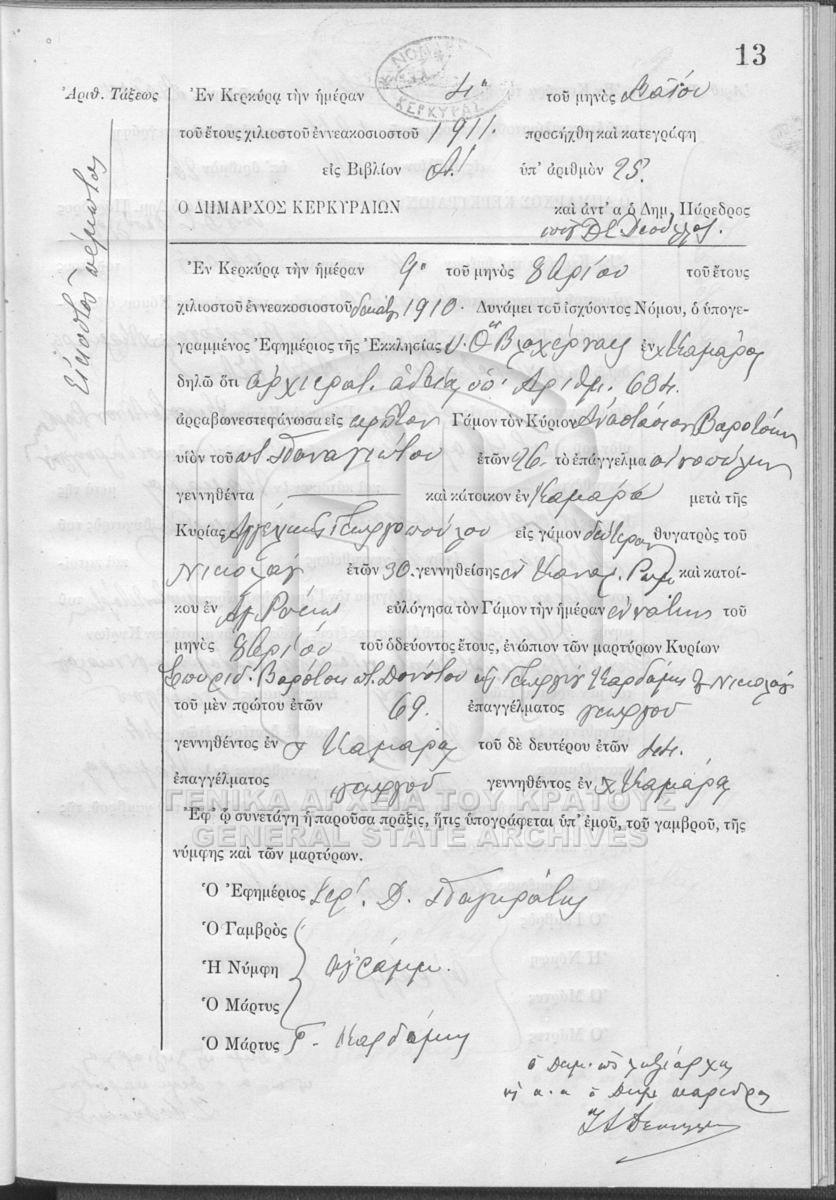 13
ΝΟΜΑΡ
ΚΕΡΚΥΡΑΣ
Ἀριθ. Τάξεως
Εἰκοστὸς πέμπτος
Ἐν Κερκύρᾳ τὴν ἡμέραν 4ην τοῦ μηνὸς
τοῦ ἔτους χιλιοστοῦ ἐννεακοσιοστοῦ 1911. προσήχθη καὶ κατεγράφη
εἰς Βιβλίον Α' ὑπ' ἀριθμὸν 25.
Ο ΔΗΜΑΡΧΟΣ ΚΕΡΚΥΡΑΙΩΝ καὶ ἀντ' α ὁ Δημ. Πάρεδρος
Ἐν Κερκύρᾳ τὴν ἡμέραν 9η τοῦ μηνὸς 8βρίου τοῦ ἔτους
χιλιοστοῦ ἐννεακοσιοστοῦ δεκάτου 1910. Δυνάμει τοῦ ἰσχύοντος Νόμου, ὁ ὑπογε-
γραμμένος Ἐφημέριος τῆς Ἐκκλησίας Υ. Θ. Βλαχέρνας ἐν χ Καμάρας
δηλῶ ὅτι ἀρχιερατ. ἀδείᾳ ὑπ' Ἀριθμ. 684.
ἀρραβωνεστεφάνωσα εἰς πρῶτον Γάμον τὸν Κύριον Ἀναστάσιον Βαρότσην
υἱὸν τοῦ ποτ Παναγιώτου ἐτῶν 26 τὸ ἐπάγγελμα οἰνοπώλην
γεννηθέντα καὶ κάτοικον ἐν Καμάρα μετὰ τῆς
Κυρίας Ἀγγελικῆς Γεωργοπούλου εἰς γάμον δεύτερον θυγατρὸς τοῦ
Νικολάου ἐτῶν 30. γεννηθείσης ἐν καὶ κατοί-
κου ἐν Ἁγ. Ρόκκῳ εὐλόγησα τὸν Γάμον τὴν ἡμέραν ἐννάτην τοῦ
μηνὸς 8βρίου τοῦ ὁδεύοντος ἔτους, ἐνώπιον τῶν μαρτύρων Κυρίων
Σπυρίδ. Βαρότση ποτ. Δονάτου κ Γεωργίου Καρδάμη Νικολάου
τοῦ μὲν πρώτου ἐτῶν 69. ἐπαγγέλματος γεωργοῦ
γεννηθέντος ἐν χ Καμάρα τοῦ δὲ δευτέρου ἐτῶν 44.
ἐπαγγέλματος γεωργοῦ γεννηθέντος ἐν χ Καμάρα
ΓΕΝΙΚΑ ΑΡΧΕΙΑ ΤΟΥ ΚΡΑΤΟΥΣ
GENERAL STATE ARCHIVES
Ἐφ' ᾧ συνετάγη ἡ παροῦσα πρᾶξις, ἥτις ὑπογράφεται ὑπ' ἐμοῦ, τοῦ γαμβροῦ, τῆς
νύμφης καὶ τῶν μαρτύρων.
Ὁ Ἐφημέριος Ἱερ. Δ. Παγκράτης
Ὁ Γαμβρὸς
Ἡ Νύμφη ἀγράμμ.
Ὁ Μάρτυς
Ὁ Μάρτυς Γ. Καρδάμης